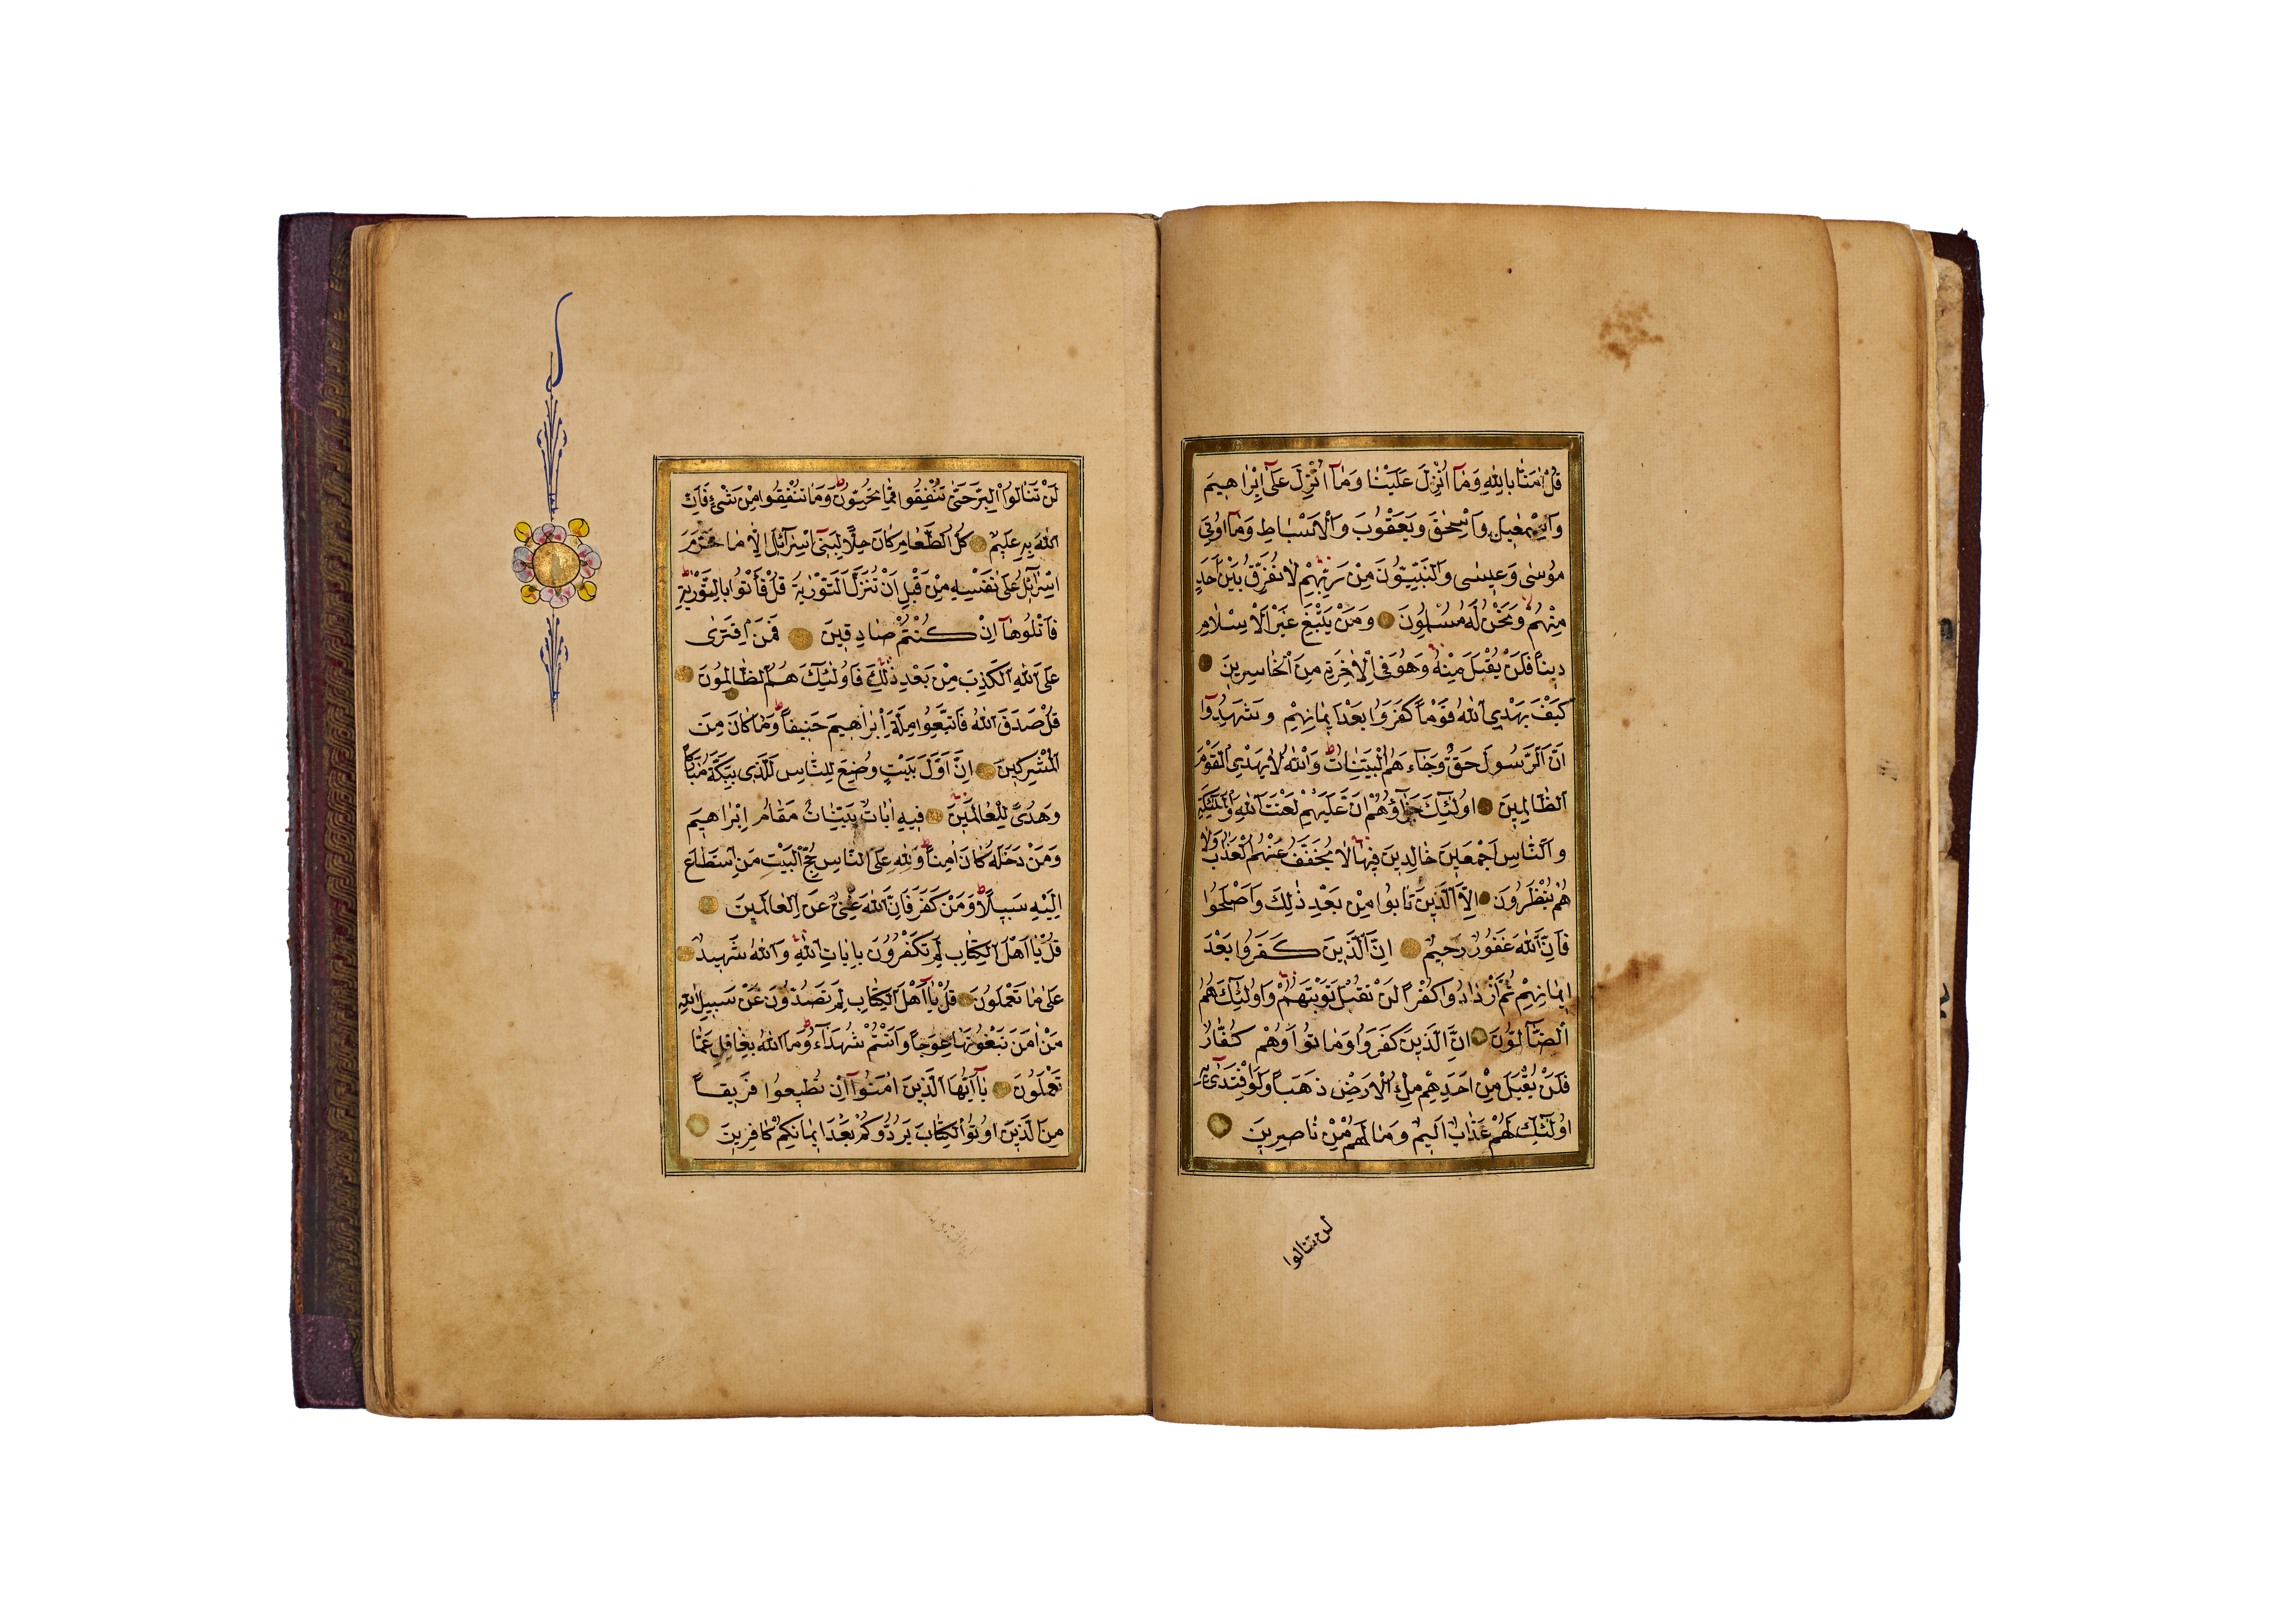 قُلْ اٰمَنَّا بِاللّٰهِ وَمَآ اُنْزِلَ عَلَيْنَا وَمَآ اُنْزِلَ عَلٰٓى اِبْرٰاهِيمَ
وَاِسْمٰعِيلَ وَاِسْحٰقَ وَيَعْقُوبَ وَالْاَسْبَاطِ وَمَآ اُوتِيَ
مُوسٰى وَعِيسٰى وَالنَّبِيُّونَ مِنْ رَبِّهِمْ لَا نُفَرِّقُ بَيْنَ اَحَدٍ
مِنْهُمْ وَنَحْنُ لَهُ مُسْلِمُونَ وَمَنْ يَبْتَغِ غَيْرَ الْاِسْلَامِ
دِينًا فَلَنْ يُقْبَلَ مِنْهُ وَهُوَ فِي الْاٰخِرَةِ مِنَ الْخَاسِرِينَ
كَيْفَ يَهْدِي اللّٰهُ قَوْمًا كَفَرُوا بَعْدَ اِيمَانِهِمْ وَشَهِدُوٓا
اَنَّ الرَّسُولَ حَقٌّ وَجَاءَهُمُ الْبَيِّنَاتُ وَاللّٰهُ لَا يَهْدِي الْقَوْمَ
الظَّالِمِينَ اُولٰٓئِكَ جَزَآؤُهُمْ اَنَّ عَلَيْهِمْ لَعْنَتَ اللّٰهِ وَالْمَلٰٓئِكَةِ
وَالنَّاسِ اَجْمَعِينَ خَالِدِينَ فِيهَا لَا يُخَفَّفُ عَنْهُمُ الْعَذَابُ وَلَا
هُمْ يُنْظَرُونَ اِلَّا الَّذِينَ تَابُوا مِنْ بَعْدِ ذٰلِكَ وَاَصْلَحُوا
فَاِنَّ اللّٰهَ غَفُورٌ رَحِيمٌ اِنَّ الَّذِينَ كَفَرُوا بَعْدَ
اِيمَانِهِمْ ثُمَّ ازْدَادُوا كُفْرًا لَنْ تُقْبَلَ تَوْبَتُهُمْ وَاُولٰٓئِكَ هُمُ
الضَّآلُّونَ اِنَّ الَّذِينَ كَفَرُوا وَمَاتُوا وَهُمْ كُفَّارٌ
فَلَنْ يُقْبَلَ مِنْ اَحَدِهِمْ مِلْءُ الْاَرْضِ ذَهَبًا وَلَوِ افْتَدٰى بِهِ
اُولٰٓئِكَ لَهُمْ عَذَابٌ اَلِيمٌ وَمَا لَهُمْ مِنْ نَاصِرِينَ
لن تنالوا
لَنْ تَنَالُوا الْبِرَّ حَتّٰى تُنْفِقُوا مِمَّا تُحِبُّونَ وَمَا تُنْفِقُوا مِنْ شَيْءٍ فَاِنَّ
اللّٰهَ بِهِ عَلِيمٌ كُلُّ الطَّعَامِ كَانَ حِلًّا لِبَنِيٓ اِسْرَآئِلَ اِلَّا مَا حَرَّمَ
اِسْرَآئِلُ عَلٰى نَفْسِهِ مِنْ قَبْلِ اَنْ تُنَزَّلَ التَّوْرٰيةُ قُلْ فَأْتُوا بِالتَّوْرٰيةِ
فَاتْلُوهَآ اِنْ كُنْتُمْ صَادِقِينَ فَمَنِ افْتَرٰى
عَلَى اللّٰهِ الْكَذِبَ مِنْ بَعْدِ ذٰلِكَ فَاُولٰٓئِكَ هُمُ الظَّالِمُونَ
قُلْ صَدَقَ اللّٰهُ فَاتَّبِعُوا مِلَّةَ اِبْرٰاهِيمَ حَنِيفًا وَمَا كَانَ مِنَ
الْمُشْرِكِينَ اِنَّ اَوَّلَ بَيْتٍ وُضِعَ لِلنَّاسِ لَلَّذِي بِبَكَّةَ مُبَارَكًا
وَهُدًى لِلْعَالَمِينَ فِيهِ اٰيَاتٌ بَيِّنَاتٌ مَقَامُ اِبْرٰاهِيمَ
وَمَنْ دَخَلَهُ كَانَ اٰمِنًا وَلِلّٰهِ عَلَى النَّاسِ حِجُّ الْبَيْتِ مَنِ اسْتَطَاعَ
اِلَيْهِ سَبِيلًا وَمَنْ كَفَرَ فَاِنَّ اللّٰهَ غَنِيٌّ عَنِ الْعَالَمِينَ
قُلْ يَا اَهْلَ الْكِتَابِ لِمَ تَكْفُرُونَ بِاٰيَاتِ اللّٰهِ وَاللّٰهُ شَهِيدٌ
عَلٰى مَا تَعْمَلُونَ قُلْ يَآ اَهْلَ الْكِتَابِ لِمَ تَصُدُّونَ عَنْ سَبِيلِ اللّٰهِ
مَنْ اٰمَنَ تَبْغُونَهَا عِوَجًا وَاَنْتُمْ شُهَدَآءُ وَمَا اللّٰهُ بِغَافِلٍ عَمَّا
تَعْمَلُونَ يَآ اَيُّهَا الَّذِينَ اٰمَنُوٓا اِنْ تُطِيعُوا فَرِيقًا
مِنَ الَّذِينَ اُوتُوا الْكِتَابَ يَرُدُّوكُمْ بَعْدَ اِيمَانِكُمْ كَافِرِينَ